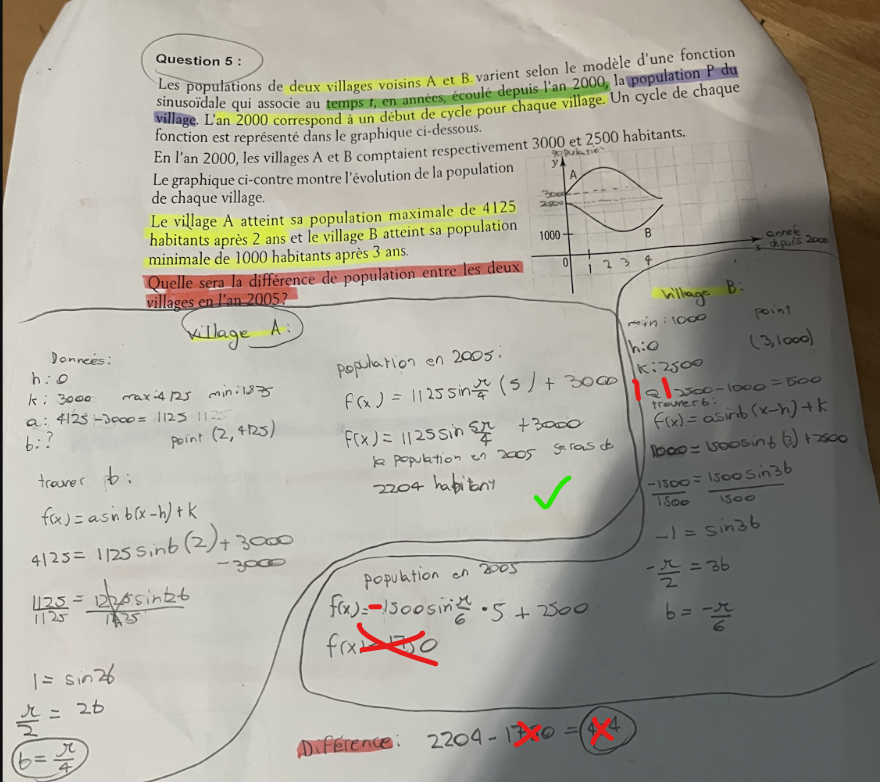 Question 5 :
Les populations de deux villages voisins A et B varient selon le modèle d'une fonction
sinusoïdale qui associe au temps t, en années, écoulé depuis l'an 2000, la population P du
village. L'an 2000 correspond à un début de cycle pour chaque village. Un cycle de chaque
fonction est représenté dans le graphique ci-dessous.
En l'an 2000, les villages A et B comptaient respectivement 3000 et 2500 habitants.
Le graphique ci-contre montre l'évolution de la population
de chaque village.
Le village A atteint sa population maximale de 4125
habitants après 2 ans et le village B atteint sa population
minimale de 1000 habitants après 3 ans.
Quelle sera la différence de population entre les deux
villages en l'an 2005?
population
y
A
3000
2500
1000
B
0 1 2 3 4
x
année
depuis 2000
Village A:
Données:
h: 0
k: 3000 max: 4125 min: 1875
a: 4125 - 3000 = 1125 1125
b: ?
point (2, 4125)
trouver b:
f(x) = a sin b(x-h) + k
4125 = 1125 sin b (2) + 3000
-3000
1125 = 1125 sin 2b
1125 1125
1 = sin 2b
π/2 = 2b
b = π/4
population en 2005:
f(x) = 1125 sin π/4 (5) + 3000
f(x) = 1125 sin 5π/4 + 3000
la population en 2005 serais de
2204 habitant
Village B:
min: 1000 point
h: 0 (3, 1000)
k: 2500
a 2500 - 1000 = 500
trouver b:
f(x) = a sin b (x-h) + k
1000 = 1500 sin b (3) + 2500
-1500 = 1500 sin 3b
1500 1500
-1 = sin 3b
-π/2 = 3b
b = -π/6
population en 2005
f(x) = -1500 sin π/6 • 5 + 2500
f(x) = 1750
Différence: 2204 - 1750 =